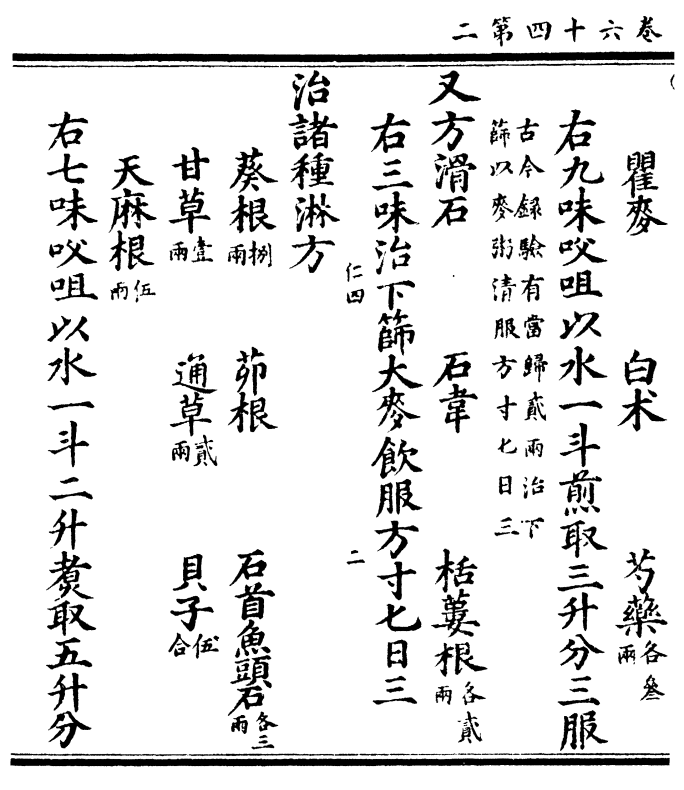 卷六十四第二
瞿麥 白术 芍藥各叄兩
右九味㕮咀以水一斗煎取三升分三服
古今録驗有當歸貳兩治下
篩以麥粥清服方寸七日三
又方滑石 石韋 栝蔞根各貳兩
右三味治下篩大麥飲服方寸七日三
仁四
二
治諸種淋方
葵根捌兩 茆根 石首魚頭石各三兩
甘草壹兩 通草貳兩 貝子伍合
天麻根伍兩
右七味㕮咀以水一斗二升煑取五升分